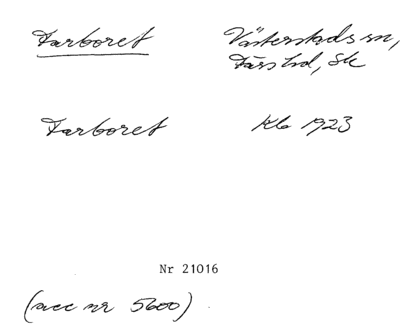 Farboret Västerstads sn,
Färs hd, Sk
Farboret Kb 1923
Nr 21016
(acc nr 5600)